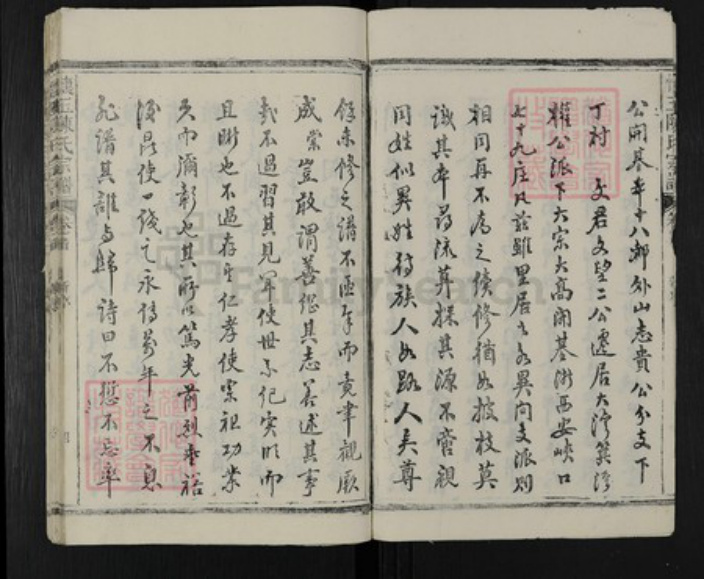 公開基本十八都外山志貴公分支下
丁村 文君文望二公遷居大灣箕
權公派下大宗大高開基浙西安峽口
七十九庄凡茲雖里居之各異向支派則
相同再不為之續修猶如披枝莫
識其本尋流莫探其源不啻視
同姓似異姓待族人如路人矣尊
餘未修之譜不匝年而竟聿觀厥
成棠豈敢謂善繼其志善述其事
哉不過習其見聞使世系紀實昭而
且晰也不過存其仁孝使宗祖功業
久而彌彰也其所以篤光前烈垂裕
後昆使一線之永傳萬年之不息
非譜其誰與歸詩曰不愆不忘率
懷玉陳氏宗譜
FamilySearch